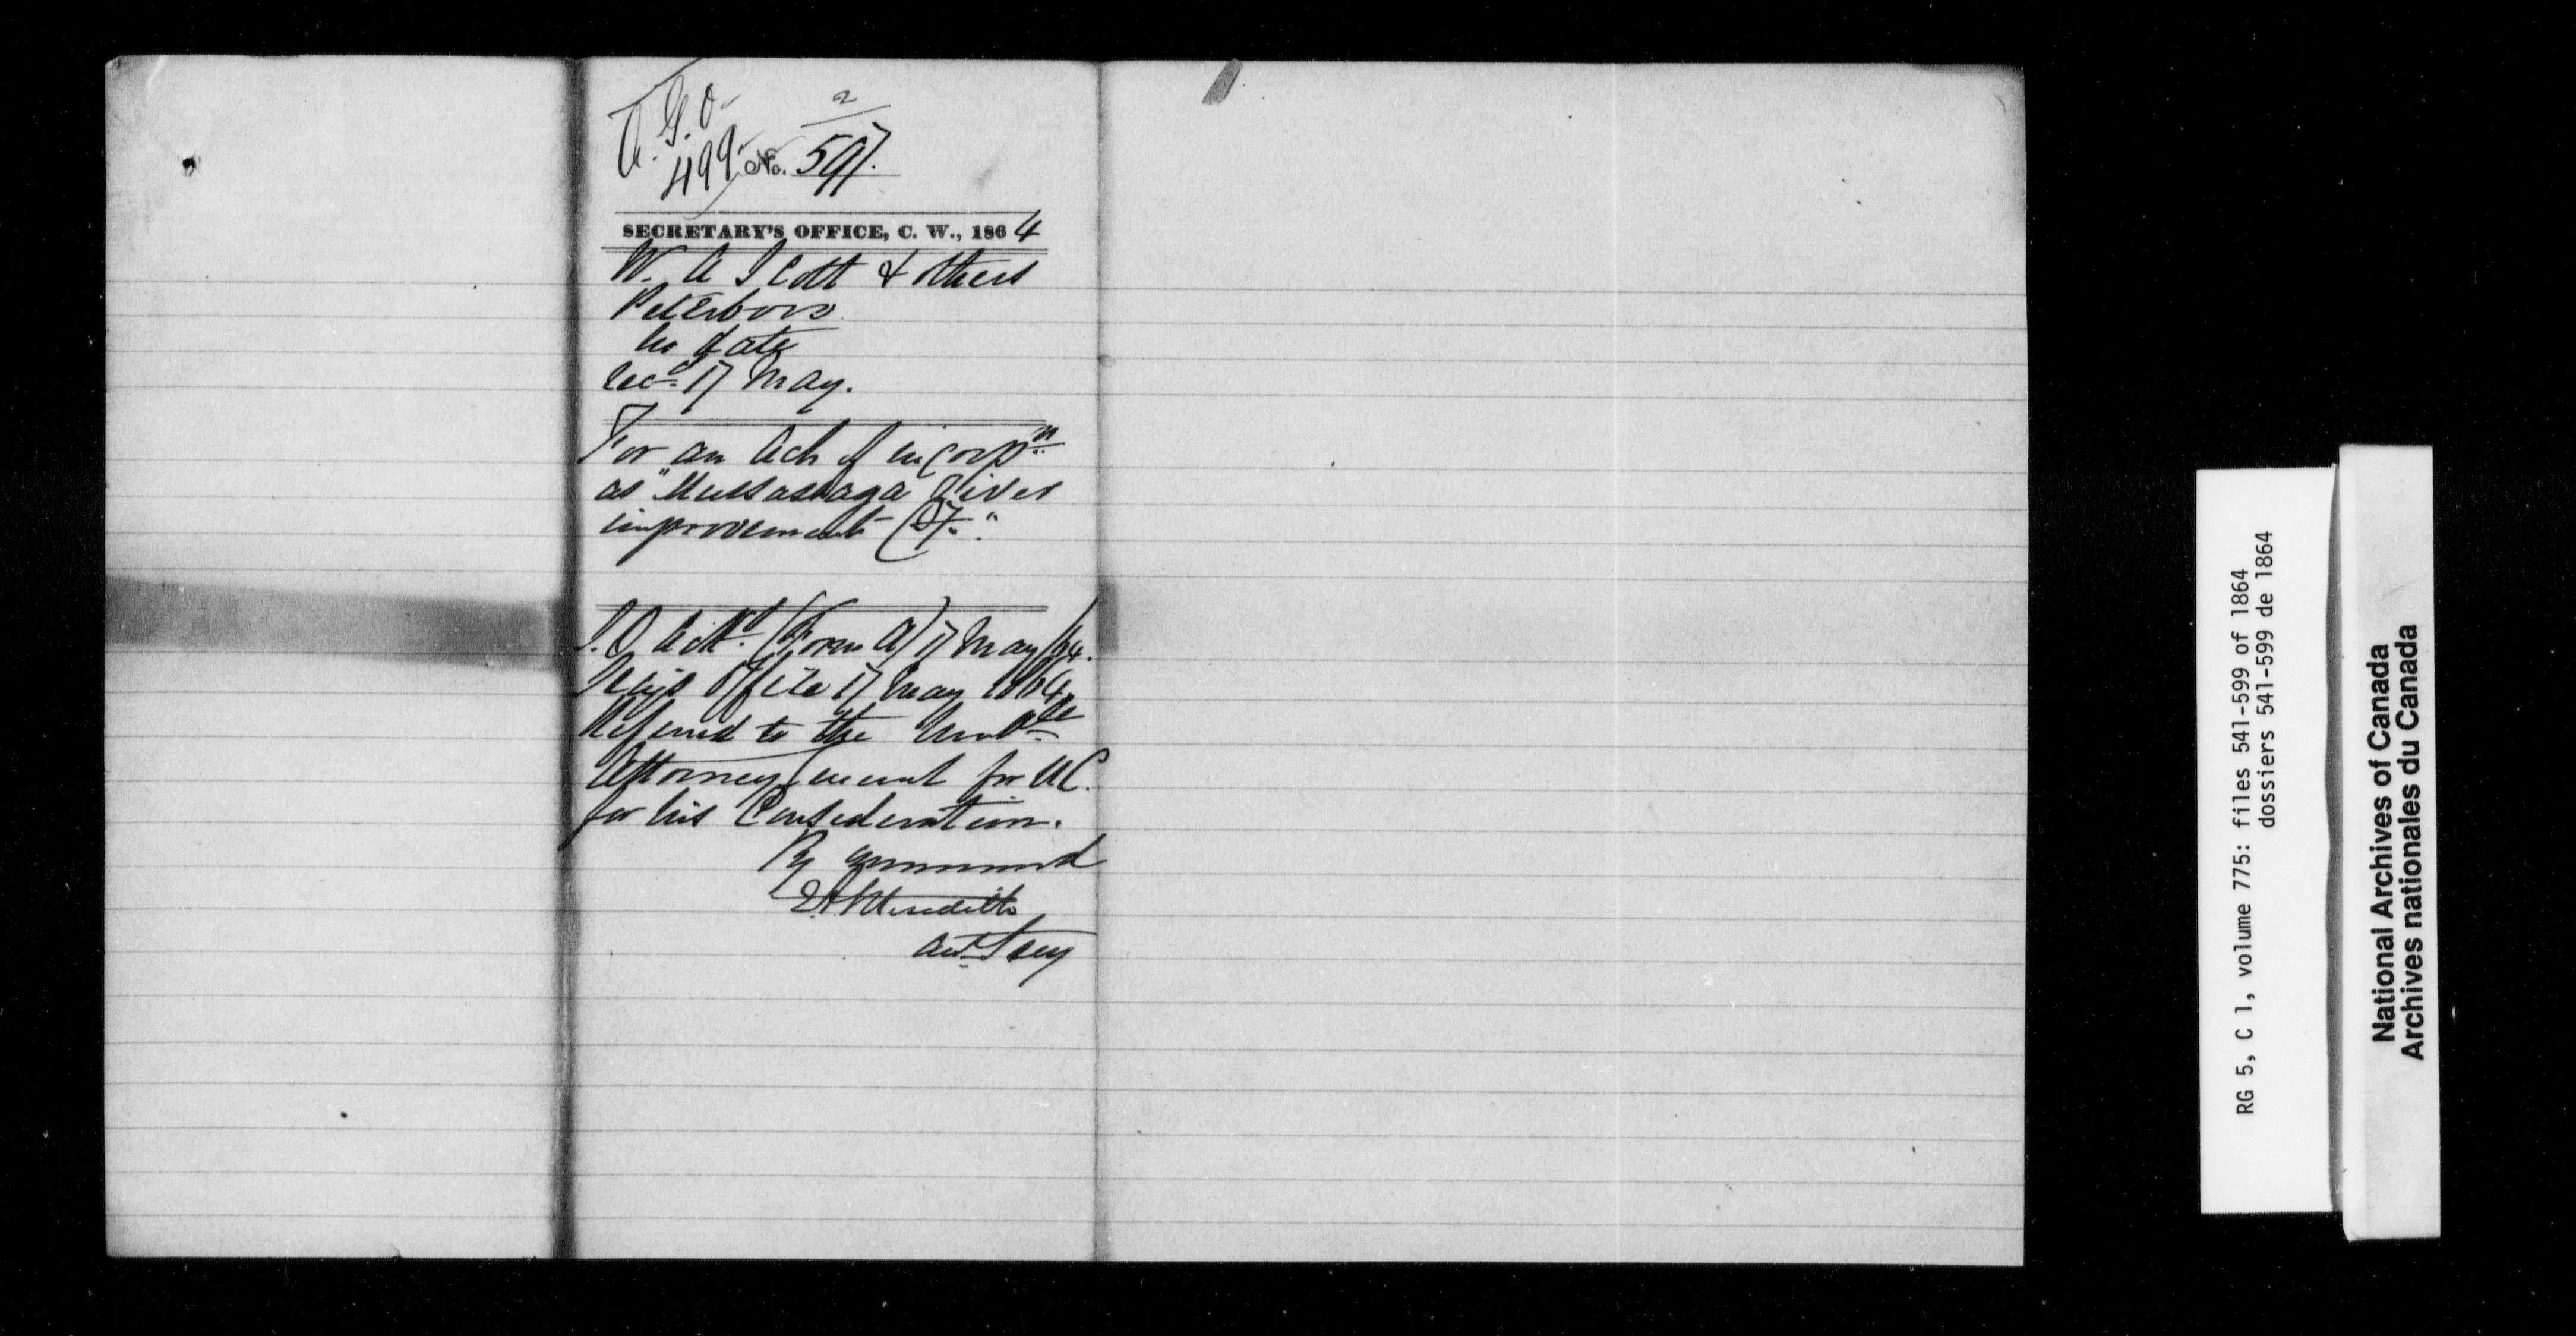 A. G. O
499
2
No. 597.
SECRETARY'S OFFICE, C. W., 1864
W. A Scott & others
Peterboro
no date
Recd 17 May.
For an Act of incorpn
as "Mississaga River
improvement Co."
S.O. Ackd (Form A) 17 May/64.
Secy's Office 17 May 1864
Referred to the Honble
Attorney General for UC.
for his Consideration.
By Command
E A Meredith
Asst Secy
RG 5, C 1, volume 775: files 541-599 of 1864
dossiers 541-599 de 1864
National Archives of Canada
Archives nationales du Canada